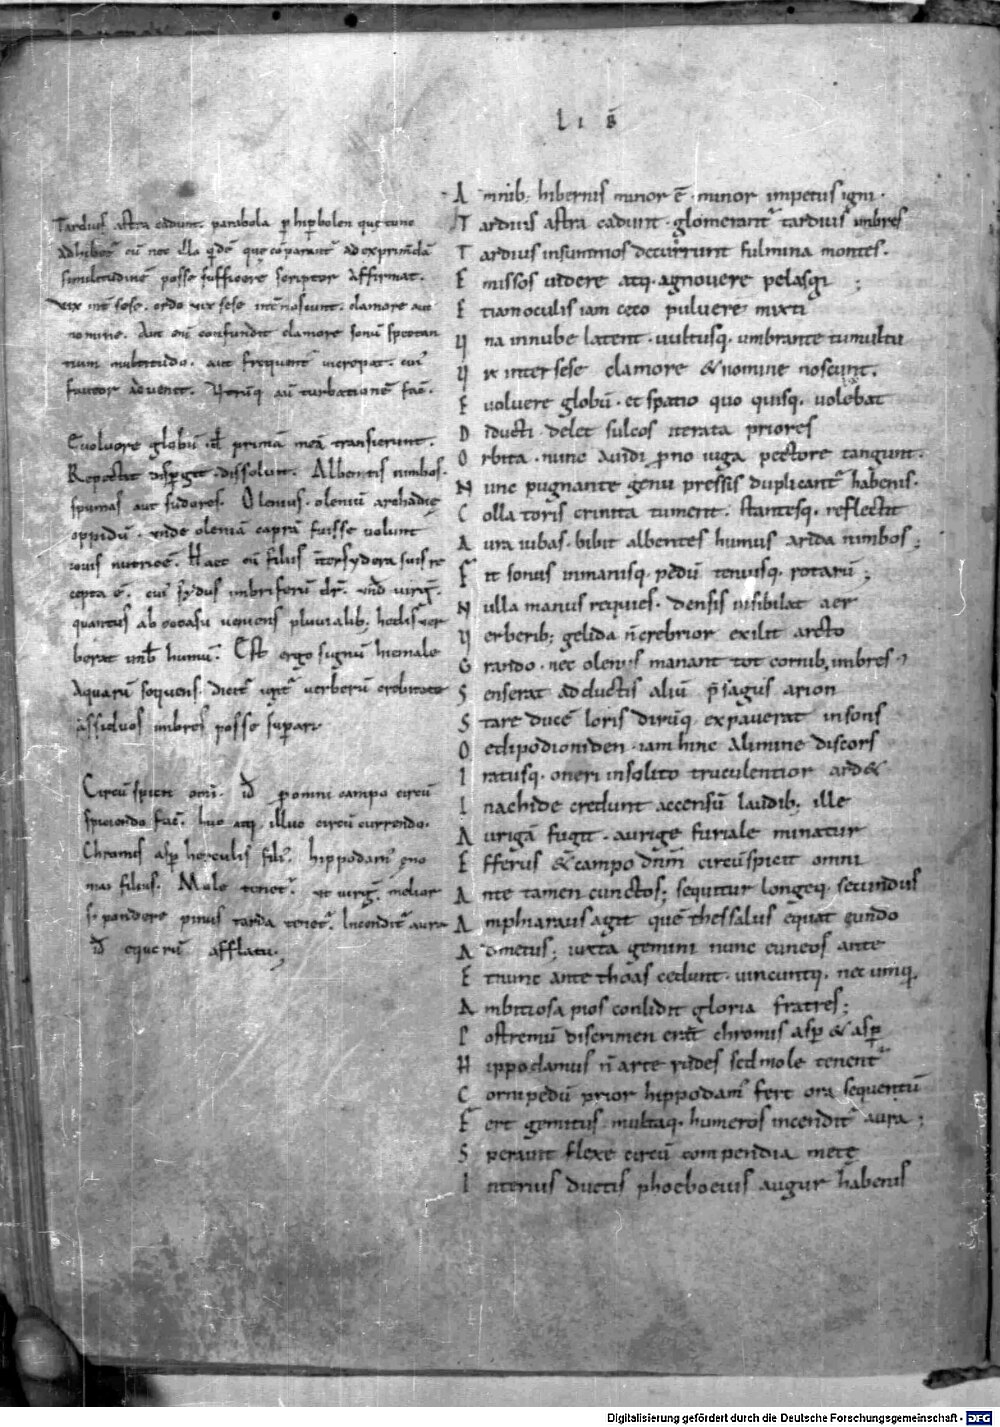 LI B̄
Tardius astra cadunt. parabola p hipbolen que tunc
adhibet̄ cū nec illa q̄dē que cōparant̄ ad exprimēdā
similitudinē posse sufficere scriptor affirmat.
vix int̄ sese. ordo vix sese int̄ noscunt. clamore aut
nomine. Aut enī confundit clamore sonū spectan
tium multitudo. aut frequent̄ increpat. cui
fautor advenit. Utrūq; aū turbationē fac̄.
Evolvere globū. t̄ primā metā transierunt.
dispgit. dissolvit. Albentis nimbos.
spumas aut sudores. Olenius. oleniū archadię
oppidū. unde oleniā caprā fuisse volunt
iovis nutricē. Haec cū filiis int̄ sydera sit re
cepta ē. cui sydus imbriferū dr̄. unđ virg̅.
quantus ab occasu veniens pluvialib; hedis ver
berat imb̄ humū. Est ergo signū hiemale
Aquarū sequens. dicit̄ igit̄ verberū crebritate
assiduos imbres posse supari
Circūspicit omī. id̄ p omni campo circū
spiciendo fac̄. huc atq; illuc circū currendo.
Chromis asp herculis fili'. hippodam' eno
mai filius. Mole tenet̄. ut virg̅. melior
pondere pinus tarda tenet̄. Incendit̄ aura
id̄ equorū afflatu.
A mnib; hibernis minor ē. minor impetus igni.
T ardius astra cadunt. glomerant̄ tardius imbres
T ardius in summos decurrunt fulmina montes.
E missos videre atq; agnovere pelasgi ;
E tiam oculis iam ceco pulvere mixti
U na in nube latent. vultusq; umbrante tumultu
U ix inter sese clamore & nomine noscunt.
E volvere globū. et spatio quo quisq; volebat
D iducti delet sulcos iterata priores
O rbita. nunc avidi p̄no iuga pectore tangunt.
N unc pugnante genu pressis duplicant̄ habenis.
C olla toris crinita tument. stantesq; reflectit
A ura iubas. bibit albentes humus arida nimbos;
F it sonus inmanisq; pedū tenuisq; rotarū ;
N ulla manus requies. densis insibilat aer
U erberib; gelida n̄ crebrior exilit arcto
G rando. nec olenijs manant tot cornib; imbres
S enserat adductis aliū p̄sagus arion
S tare ducē loris dirūq; expaverat insons
O edipodioniden. iam hinc a limine discors
I ratusq; oneri insolito truculentior ard&
I nachide credunt accensū laudib; ille
A urigā fugit. aurige furiale minatur
E fferus & campo dn̄m circūspicit omni
A nte tamen cunctos; sequitur longeq; secundus
A mphiaraus agit quē thessalus equat eundo
A dmetus; iuxta gemini nunc euneos ante
E t nunc ante thoas cedunt. vincuntq; nec umq;
A mbitiosa pios conlidit gloria fratres;
P ostremū discrimen erāt chromis asp & asp
H ippodamus n̄ arte rudes sed mole tenent̄
C ornipedū prior hippodam' fert ora sequentū
F ert gemitus multaq; humeros incendit̄ aura ;
S peravit flexe circū compendia metę
I nterius ductis phoeboeius augur habenis
Digitalisierung gefördert durch die Deutsche Forschungsgemeinschaft - DFG